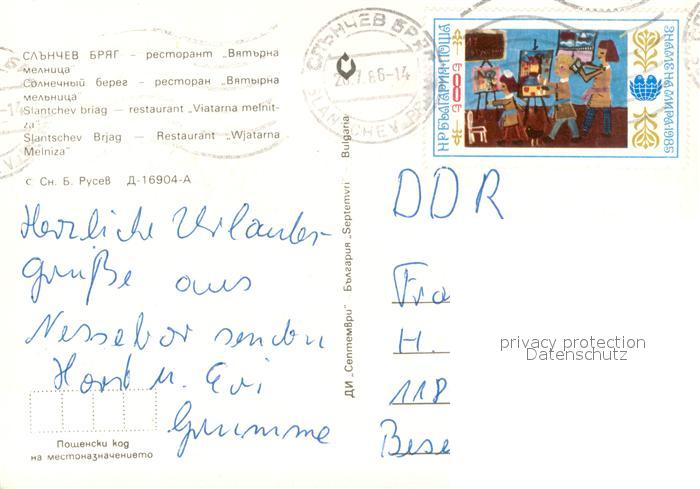 СЛЪНЧЕВ БРЯГ — ресторант „Вятърна
мелница"
Солнечный берег — ресторан „Вятырна
мельница"
Slantchev briag — restaurant „Viatarna melnit-
za"
Slantschev Brjag — Restaurant „Wjatarna
Melniza"
с Сн. Б. Русев Д-16904-А
Herzliche Urlaubs-
grüße aus
Nessebar senden
Horst u. Evi
Grumme
Пощенски код
на местоназначението
ДИ „Септември" България „Septemvri" Bulgaria
СЛЪНЧЕВ БРЯГ
7.86-14
SLANTCHEV BR
НР БЪЛГАРИЯ·ПОЩА
ЗНАМЕ НА МИРА·1985
DDR
Fra
H.
118
Bese
privacy protection
Datenschutz